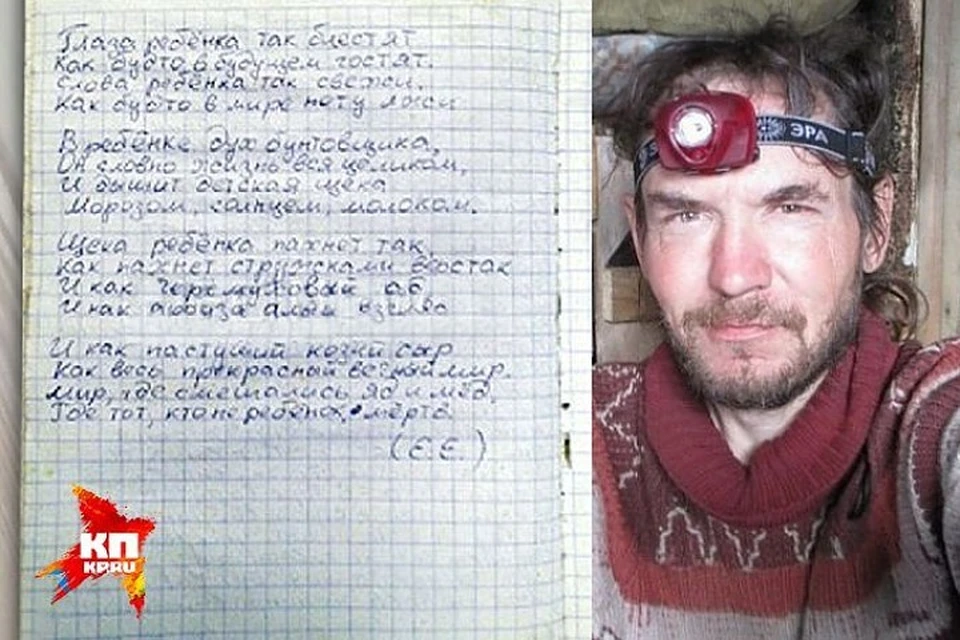 Глаза ребёнка так блестят
Как будто в будущем гостят.
Слова ребёнка так свежи.
Как будто в мире нету лжи
В ребёнке дух бунтовщика,
Он словно жизнь вся целиком,
И дышит детская щека
Морозом, солнцем, молоком.
Щека ребёнка пахнет так,
Как пахнет стружками верстак
И как черёмуховый
И как арбуза алый
И как пастуший козий сыр
Как весь прекрасный вольный мир.
Мир, где смешались яд и мёд,
Где тот, кто не ребёнок,
(Е.Е.)
КП
KP.RU
ЭРА